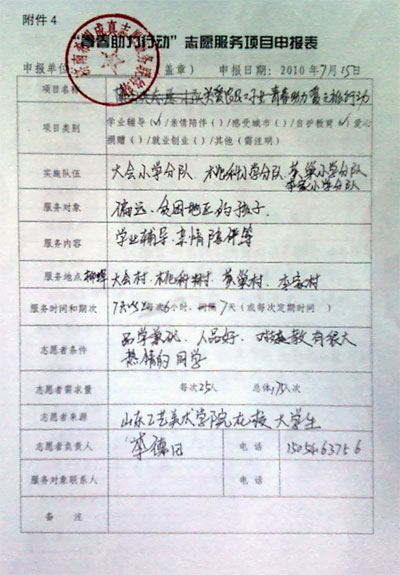 附件4
"青春助力行动"志愿服务项目申报表
申报单位（盖章） 申报日期：2010年7月15日
项目名称
项目类别 学业辅导（✓）/亲情陪伴（ ）/感受城市（ ）/自护教育（✓）爱心
捐赠（ ）/就业创业（ ）/其他（需注明）
实施队伍 大会小学分队、桃科小学分队、黄巢小学分队
李家小学分队
服务对象 偏远、贫困地区的孩子
服务内容 学业辅导 亲情陪伴等
服务地点 柳埠 大会村、桃科村、黄巢村、李家村
服务时间和期次 7天 每次6小时、间隔7天（或每次定期时间 ）
志愿者条件 品学兼优、人品好、对支教有很大
热情的同学
志愿者需求量 每次25人 总体175人次
志愿者来源 山东工艺美术学院在校大学生
志愿者负责人 电话
服务对象联系人 电话
备注